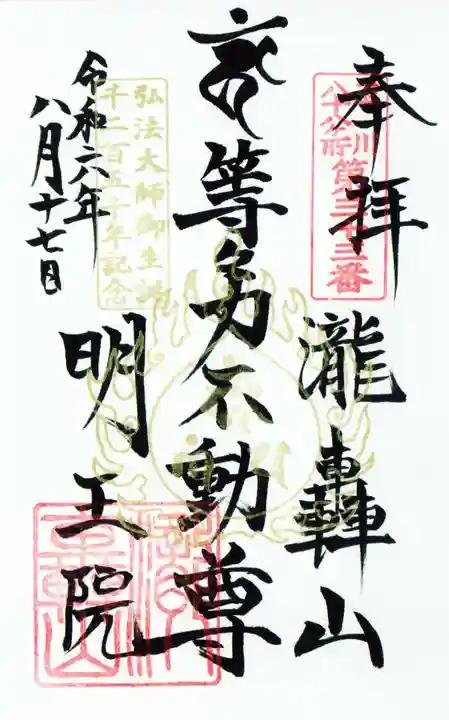 奉拝
瀧轟山
等身不動尊
令和六年
八月十七日
明王院
川
八十八ヶ所
第三十三番
弘法大師御生誕
千二百五十年記念